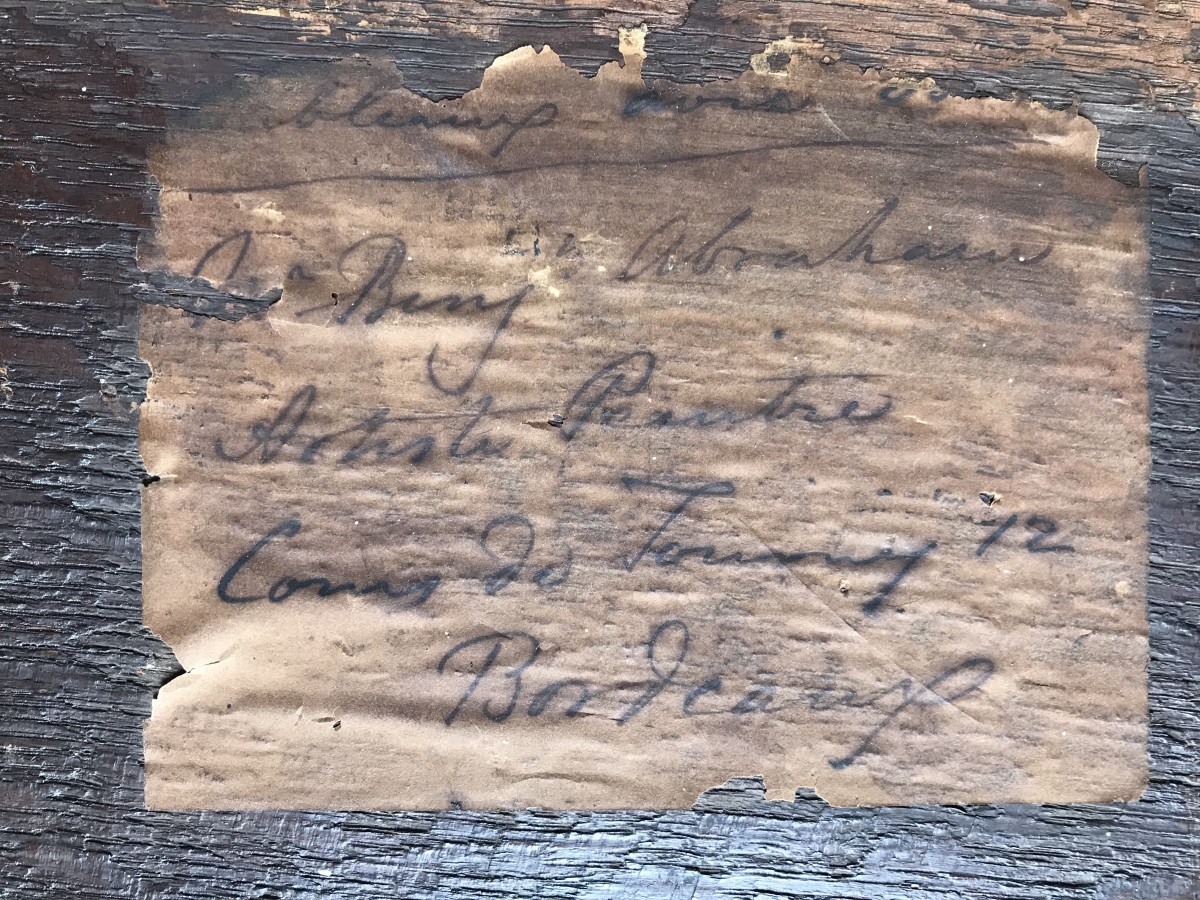 bleaux avec
Benj in Abraham
Artiste Peintre
Cours de Tourny 12
Bordeaux